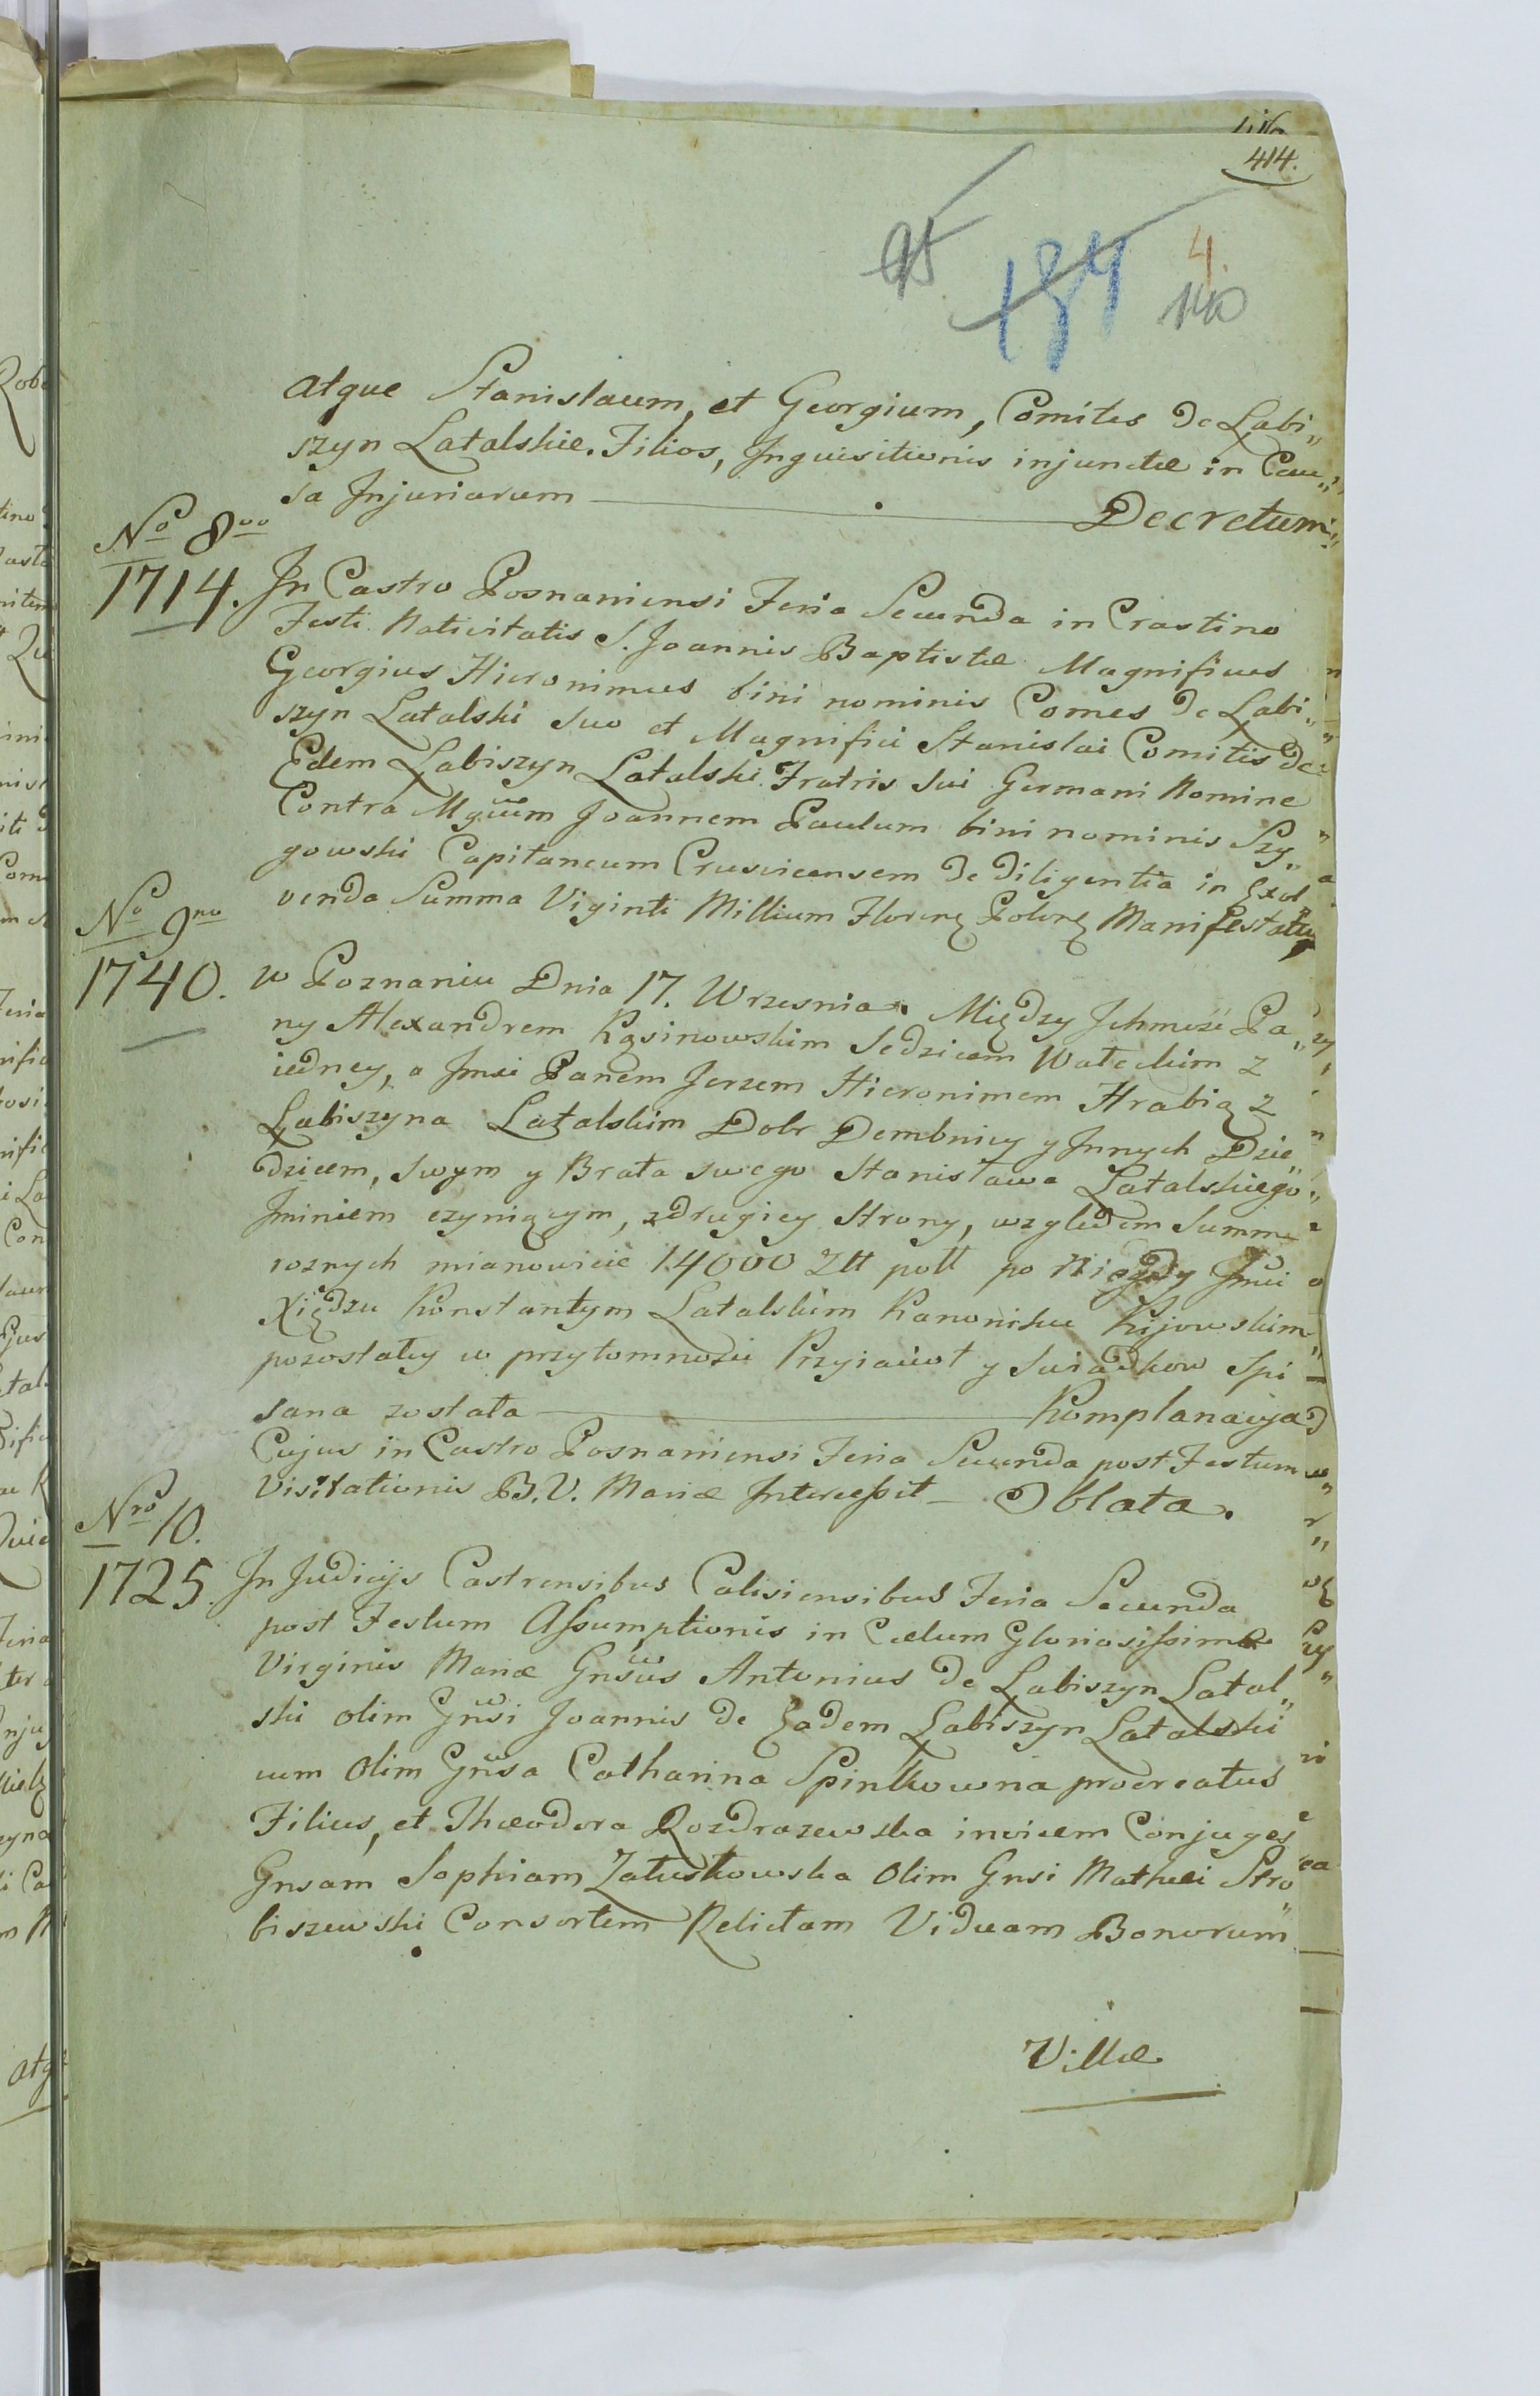 414.
95 184 4.
140
atque Stanislaum, et Georgium, Comites de Łabi„
szyn Latalskie. Filios, Inquisitionis injunctæ in Cau„
sa Injuriarum — Decretum.
No 8vo
1714. In Castro Posnaniensi Feria Secunda in Crastino
Festi Nativitatis S. Joannis Baptistæ Magnificus
Georgius Hieronimus bini nominis Comes de Łabi„
szyn Latalski suo et Magnifici Stanislai Comitis de
Edem Łabiszyn Latalski Fratris sui Germani Nomine
Contra Mgcum Joannem Paulum bini nominis Szy„
gowski Capitaneum Crusvicensem de diligentia in Exol„
venda Summa Viginti Millium Floreng Polong Manifestatur
No 9no
1740. w Poznaniu Dnia 17. Wrzesnia. Między Ichmość Pa„
ny Alexandrem Kąsinowskim Sedzicem Wałeckim z
iedney, a Jmci Panem Jerzem Hieronimem Hrabią z
Łabiszyna Latalskim Dobr Dembnicy y Innych Dzie„
dzicem, swym y Brata swego Stanisława Latalskiego
Iminiem czyniącym, z drugiey Strony, względem Summ
roznych mianowicie 14000 Ztt poll po niegdy Jmci
Xiędzu Konstantym Latalskim Kanoniku Kijowskim
pozostałey w przytomnosci Przyiaciol y Swiadkow Spi
sana została — Komplanacya
Cujus in Castro Posnaniensi Feria Secunda post Festum
Visitationis B. V. Mariæ Intercessit — Oblata.
Nro 10.
1725. In Judicijs Castrensibus Calisiensibus Feria Secunda
post Festum Assumptionis in Cælum Gloriosissimæ
Virginis Mariæ Gnsus Antonius de Łabiszyn Latal„
ski olim Gnsi Joannis de Eadem Łabiszyn Latalski
cum Olim Gnsa Catharina Spinkowna procreatus
Filius, et Theodora Rozdrazewska invicem Conjuges
Gnsam Sophiam Załuskowska Olim Gnsi Mathei Stro„
biszewski Consortem Relictam Viduam Bonorum
Villæ